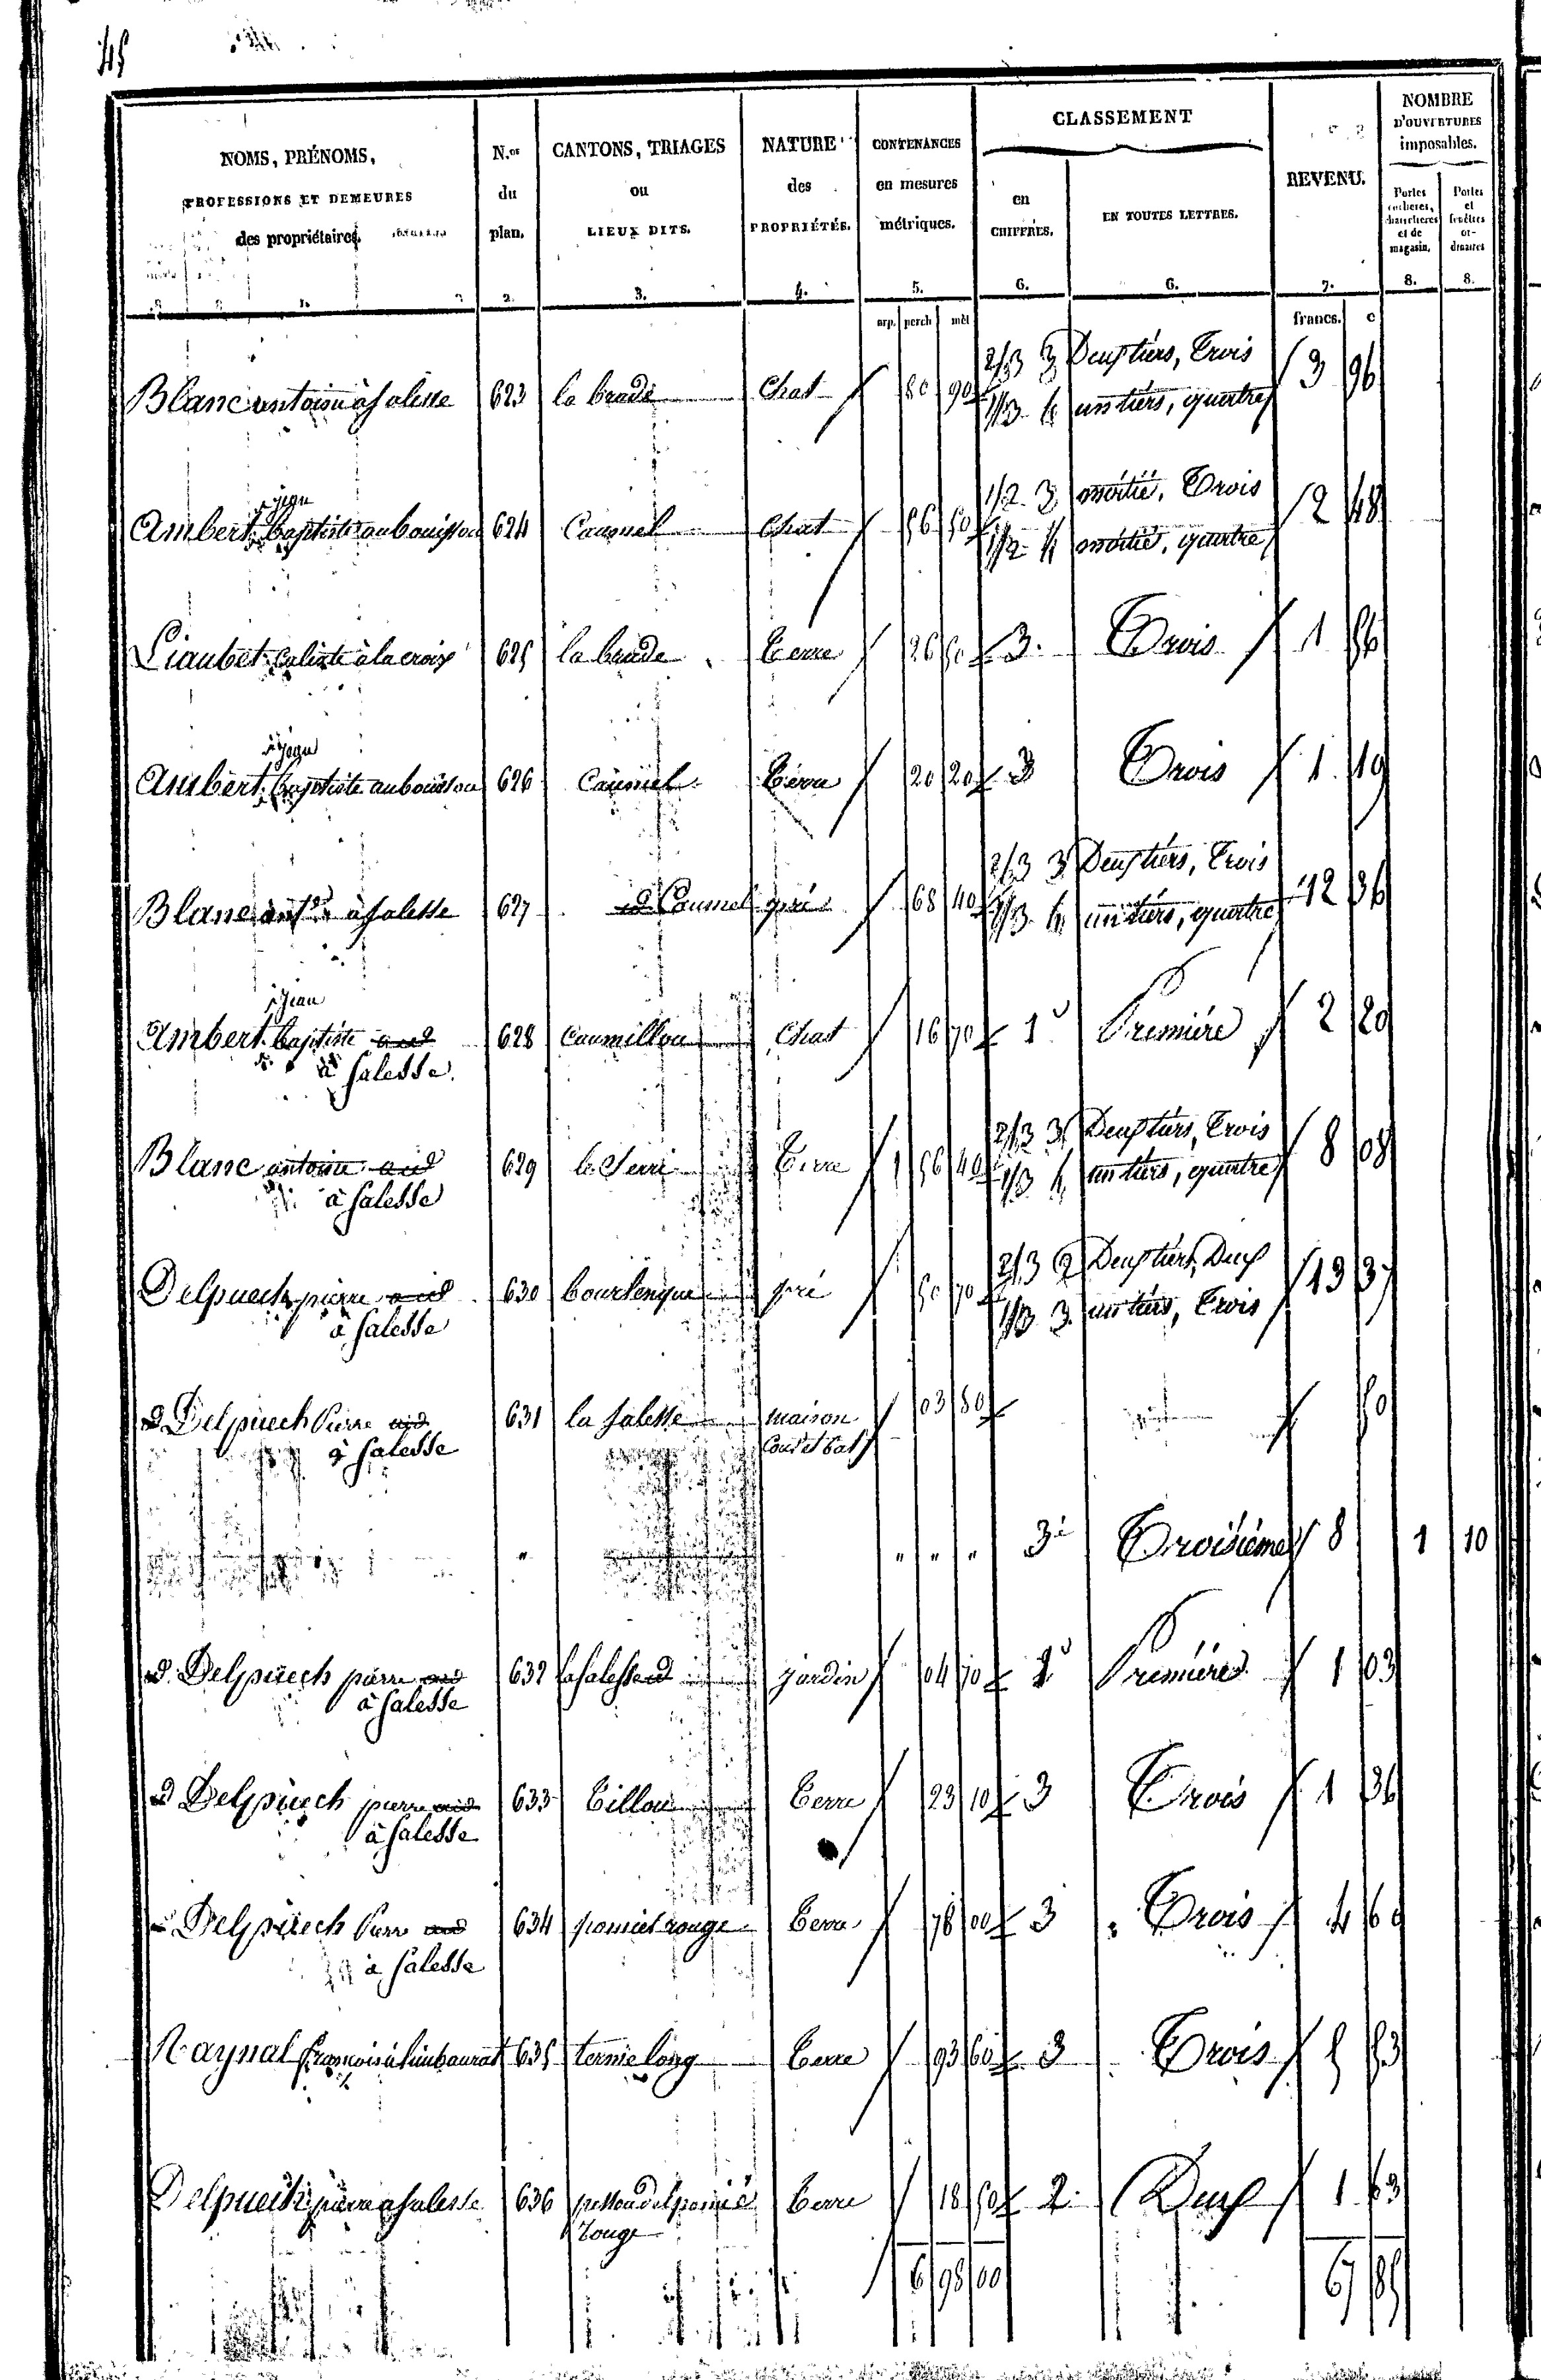 45
NOMS, PRÉNOMS,
PROFESSIONS ET DEMEURES
des propriétaires.
1.
N.os
du
plan.
2.
CANTONS, TRIAGES
ou
LIEUX DITS.
3.
NATURE
des
PROPRIÉTÉS.
4.
CONTENANCES
en mesures
métriques.
5.
CLASSEMENT
en
CHIFFRES.
6.
EN TOUTES LETTRES.
6.
REVENU.
7.
NOMBRE
D'OUVERTURES
imposables.
Portes
cochères,
charretières
et de
magasin.
8.
Portes
et
fenêtres
or-
dinaires
8.
arp. perch mèt francs. c
2/3 3 Deux tiers, Trois
Blanc antoine à Salesse 623 la brade Chat 80 90 3 96
1/3 4 un tiers, quatre
jean 1/2 3 moitié, Trois
Ambert Baptiste au bouisson 624 Caumel Chat 56 50 2 48
1/2 4 moitié, quatre
Liaubet Calixte à la croix 625 la brade Terre 26 50 3. Trois 1 56
jean
Ambert Baptiste au bouisson 626 Caumel Terre 20 20 3 Trois 1 19
2/3 3 Deux tiers, Trois
Blanc ant.ne à Salesse 627 Caumel pré 68 40 12 36
1/3 4 un tiers, quatre
jean
Ambert Baptiste 628 Caumillou Chat 16 70 1e Première 2 20
à Salesse.
2/3 3 Deux tiers, Trois
Blanc antoine 629 le Serre Terre 1 56 40 8 08
à Salesse 1/3 4 un tiers, quatre
2/3 2 Deux tiers, Deux
Delpuech pierre 630 bourlengue pré 50 70 13 37
à Salesse 1/3 3 un tiers, Trois
Delpuech Pierre 631 la Salesse maison 03 80 50
à Salesse Cour et bat
" " " " 3e Troisième 8 1 10
Delpuech pierre 632 la Salesse jardin 04 70 1e Première 1 03
à Salesse
Delpuech pierre 633 Tillou Terre 23 10 3 Trois 1 36
à Salesse
Delpuech Pierre 634 pomiel rouge Terre 78 00 3 Trois 4 60
à Salesse
Raynal françois 635 terme long Terre 93 60 3 Trois 5 53
Delpuech pierre à Salesse 636 Terre 18 50 2. Deux 1 63
rouge
6 98 00 67 85